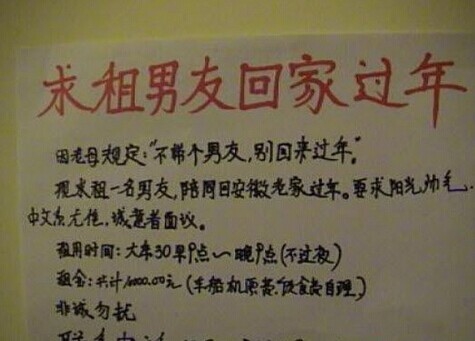 求租男友回家过年
因老母规定:"不带个男友,别回来过年。"
现求租一名男友,陪同回安徽老家过年。要求阳光帅气.
中文系尤佳,诚意者面议。
租用时间:大年30早9点~晚9点(不过夜)
租金:共计1000.00元(车船机原费.饮食费自理.)
非诚勿扰
联系电话